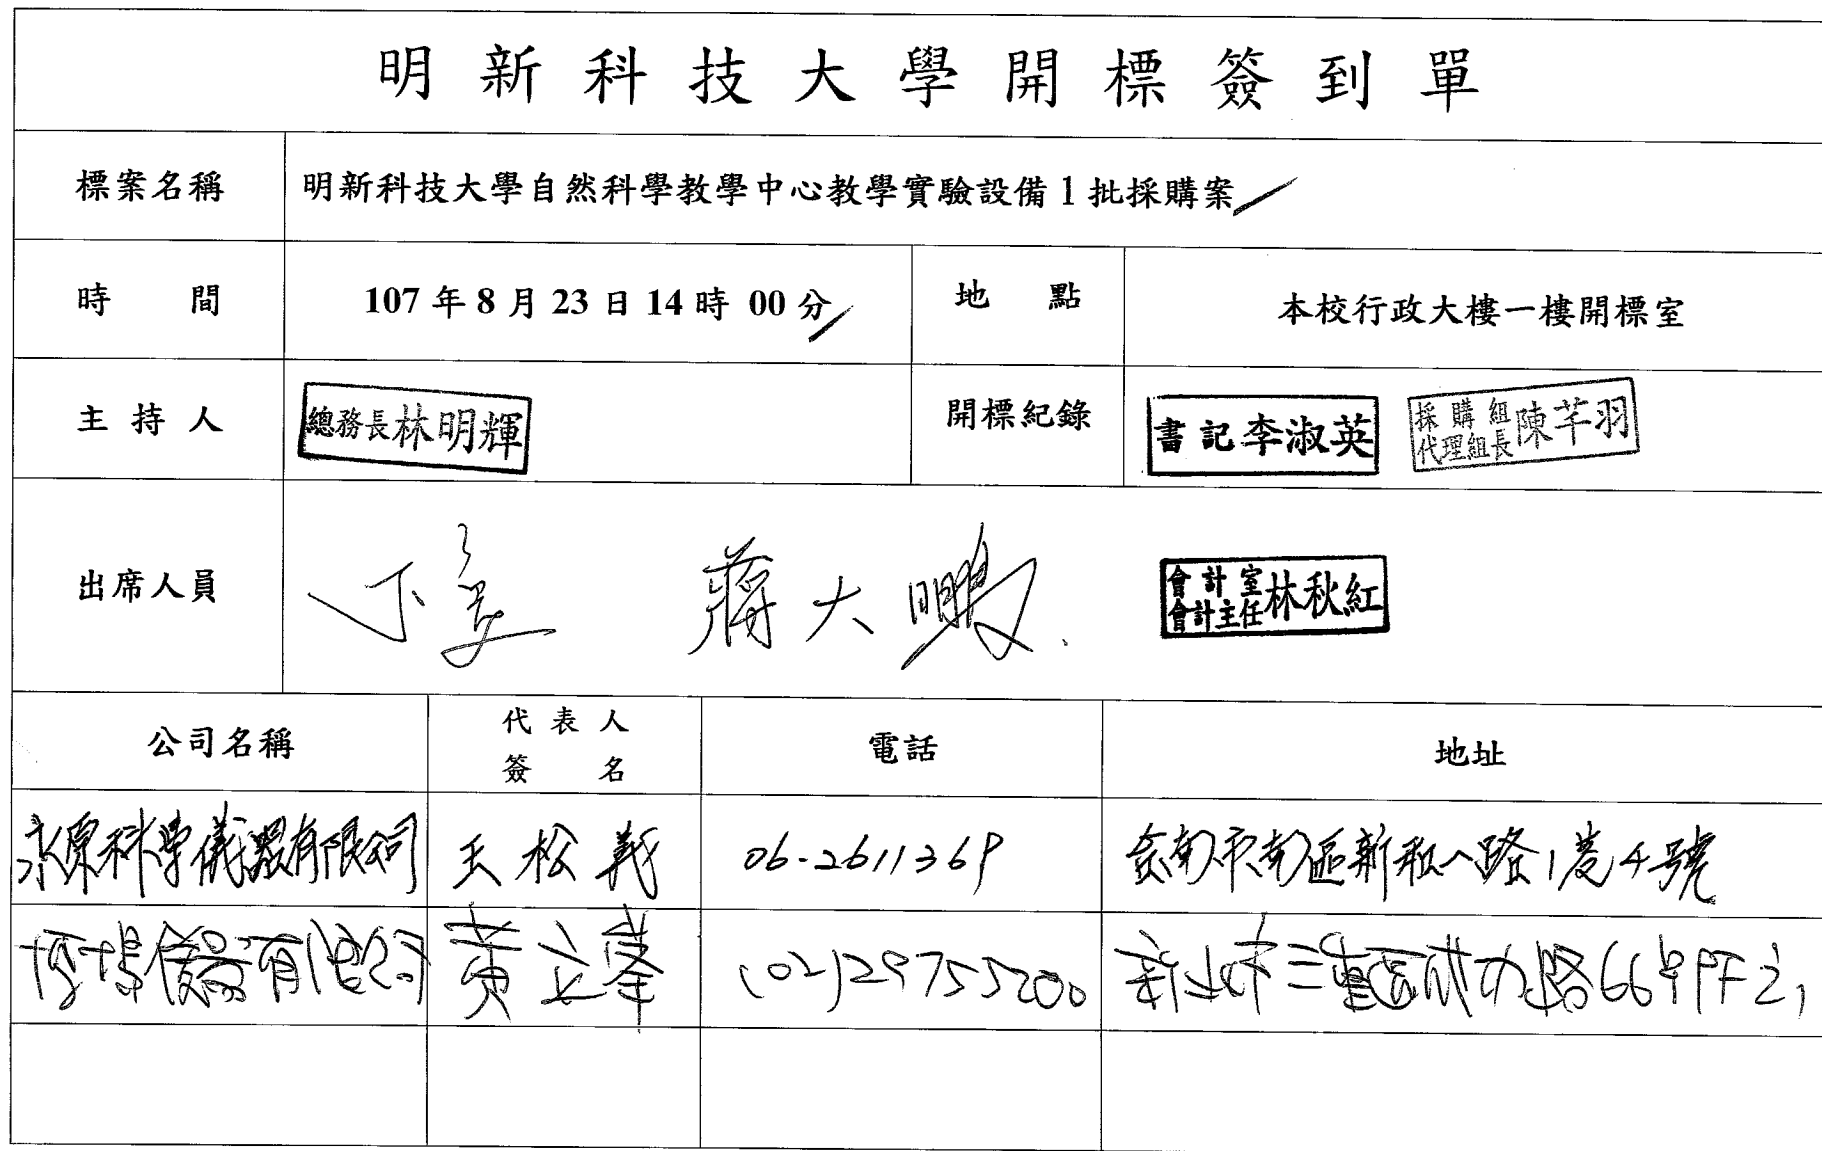 明新科技大學開標簽到單
標案名稱 明新科技大學自然科學教學中心教學實驗設備1批採購案
時 間 107年8月23日14時 00分 地 點 本校行政大樓一樓開標室
主持人 總務長林明輝 開標紀錄 書記李淑英 採購組代理組長陳芊羽
出席人員 蔣大鵬 會計室會計主任林秋紅
公司名稱 代表人簽名 電話 地址
永原科學儀器有限公司 王松義 06-2611369 台南市南區新和一路1巷4號
儀器有限公司 黃立峯 (02)29755200 新北市三重區成功路66號9F之1